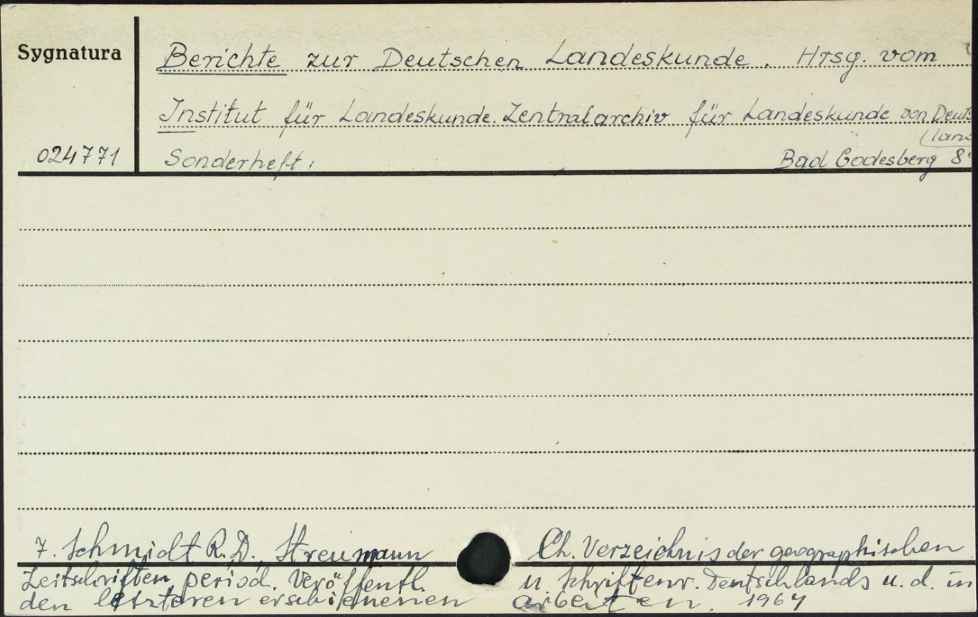 Sygnatura
Berichte zur Deutschen Landeskunde. Hrsg. vom
Institut für Landeskunde. Zentralarchiv für Landeskunde von Deuts
(lands
024771
Sonderheft: Bad Godesberg 8°
7. Schmidt R.D., Streumann Ch. Verzeichnis der geographischen
Zeitschriften, period. Veröffentl. u. Schriftenr. Deutschlands u. d. in
den letzteren erschienenen arbeiten. 1964